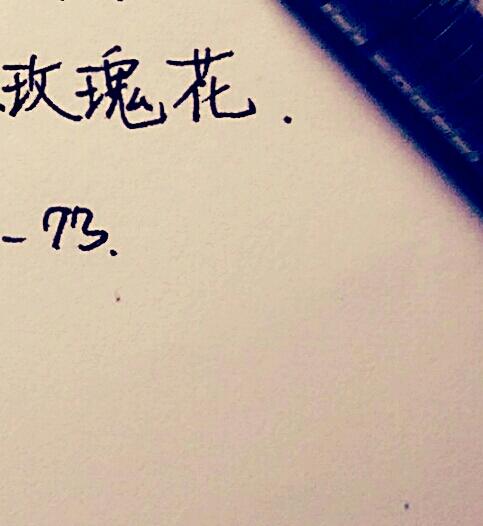 玫瑰花.
-73.